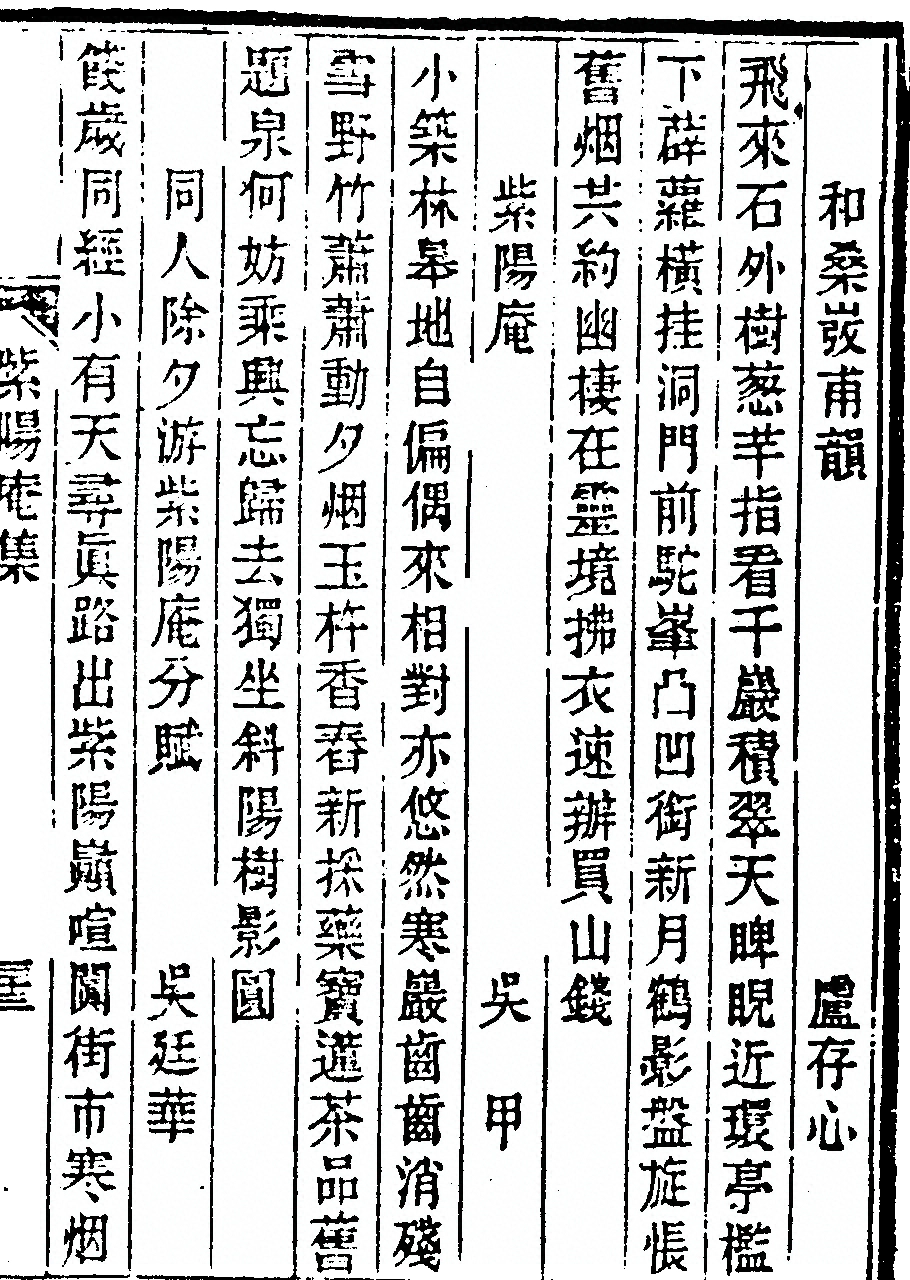 和桑弢甫韻 盧存心
飛來石外樹葱芊指看千巖積翠天睥睨近環亭檻
下薜蘿橫挂洞門前駝峯凸凹銜新月鶴影盤旋悵
舊烟共約幽棲在靈境拂衣速辦買山錢
紫陽庵 吳甲
小築林皋地自偏偶來相對亦悠然寒巖齒齒消殘
雪野竹蕭蕭動夕烟玉杵香舂新採藥寶遺茶品舊
題泉何妨乘興忘歸去獨坐斜陽樹影圓
同人除夕游紫陽庵分賦 吳廷華
餞歲同經小有天尋眞路出紫陽巔喧闐街市寒烟
紫陽庵集